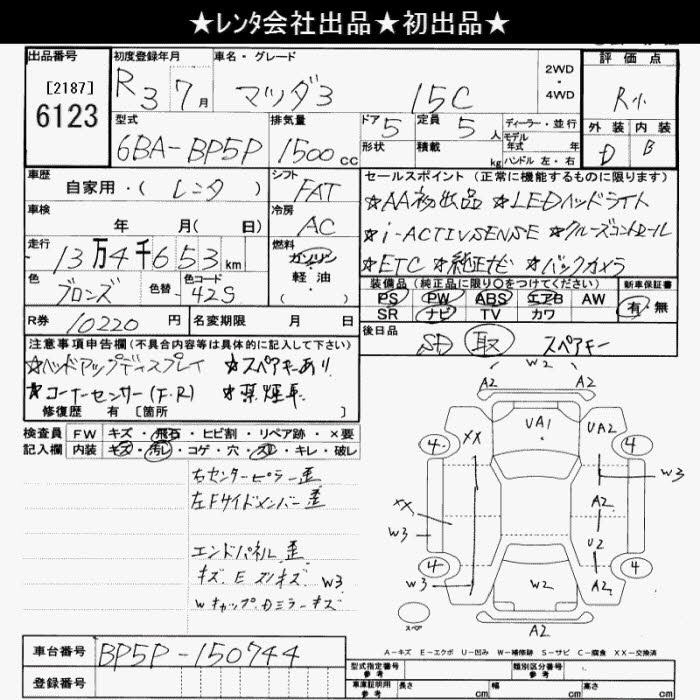 ★ﾚﾝﾀ会社出品★初出品★
出品番号 初度登録年月 車名・グレード 評価点
[2187]
6123
R3 7月 マツダ3 15C 2WD・4WD R小
型式 排気量 ドア 定員 ディーラー・並行 外装 内装
6BA-BP5P 1500cc 5 5人 モデル年式 年 D B
形状 積載 kg ハンドル 左・右
車歴 シフト セールスポイント(正常に機能するものに限ります)
自家用・(レンタ) FAT ☆AA初出品 ☆LEDヘッドライト
車検 冷房
年 月(日) AC ☆i-ACTIVSENSE ☆クルーズコントロール
走行 燃料
13万4千653km ガソリン・軽油・( ) ☆ETC ☆純正ナビ ☆バックカメラ
色 色替 色コード 装備品(純正品に限り○をつけてください) 新車保証書
ブロンズ -42S PS PW ABS エアB AW 有・無
SR ナビ TV カワ
R券 10220円 名変期限 月 日 後日品
SD 取 スペアキー
注意事項申告欄(不具合内容等は具体的に記入して下さい)
☆ヘッドアップディスプレイ ☆スペアキーあり
☆コーナーセンサー(F・R) ☆禁煙車
修復歴 有[箇所 ]
検査員記入欄 FW キズ・飛石・ヒビ割・リペア跡・×要
内装 キズ・汚レ・コゲ・穴・スレ・キレ・破レ
右センターピラー歪
左Fサイドメンバー歪
エンドパネル歪
キズ.E スリキズ W3
Wキャップ.Dミラーキズ
W2
A2 A2
4 XX UA1 UA2 4
W3
XX A2
W3 U2
4 W3 W2 A2 4
スペア A2
A-キズ E-エクボ U-凹み W-補修跡 S-サビ C-腐食 XX-交換済
車台番号 BP5P-150744
型式指定番号 参考 類別区分番号 参考
登録番号 車庫証明用 参考 長さ cm 幅 cm 高さ cm